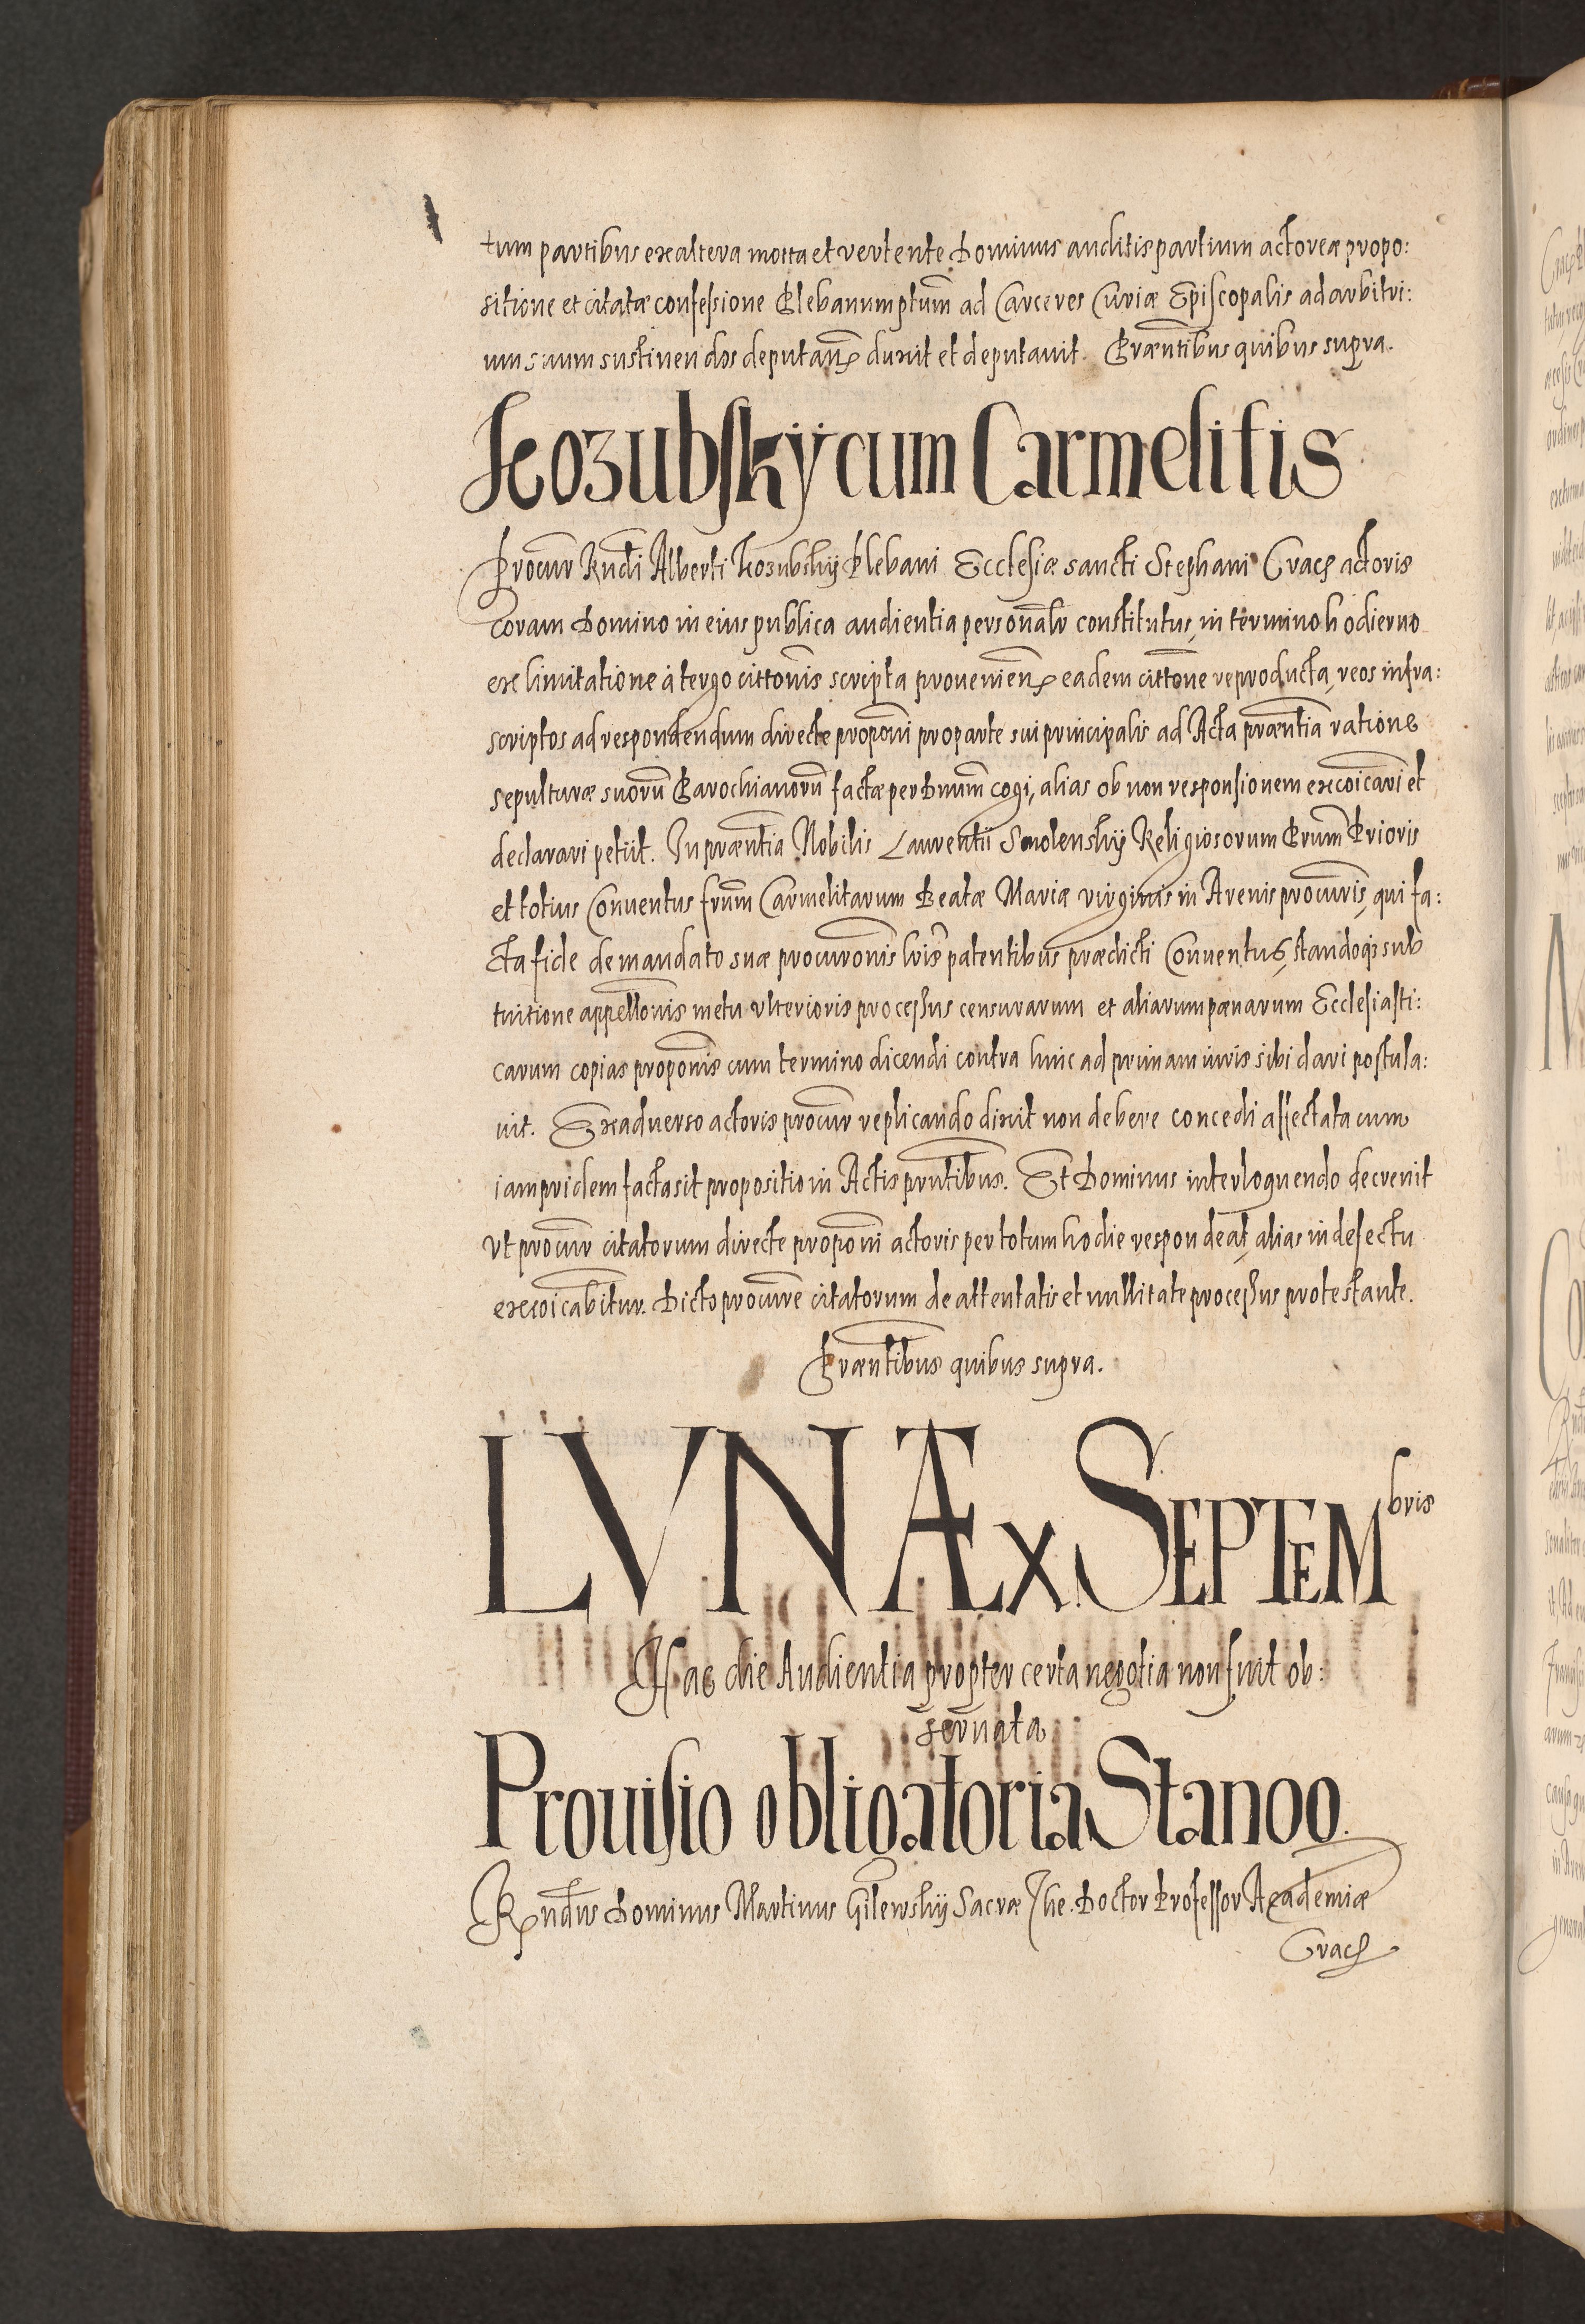 tum partibus ex altera mota et vertente Dominus auditis partium actoreæ propo:
sitione et citatæ confessione Plebanum ptum̃ ad Carceres Curiæ Episcopalis ad arbitri:
um suum sustinendos deputan̄ duxit et deputauit. Præntibus quibus supra.
Kozubsky cum Carmelitis
Procur Rndi Alberti Kozubskÿ Plebani Ecclesiæ sancti Stephani Crac̄ actoris
coram Domino in eius publica audientia personalr constitutus, in termino hodierno
ex limitatione à tergo cittonis scripta prouenien̄ eadem cittone reproducta, reos infra:
scriptos ad respondendum directe proponi pro parte sui principalis ad Acta præntia ratione
sepulturæ suorū Parochianorū factæ per Dnum cogi, alias ob non responsionem excoicari et
declarari petiit. In præntia Nobilis Laurentii Smolenskÿ Religiosorum Prum Prioris
et totius Conuentus frum Carmelitarum Beatæ Mariæ virginis in Arenis procuris, qui fa:
cta fide de mandato suæ procuronis lris patentibus prædicti Conuentus, standoq̃ sub
tuitione appellonis metu vlterioris processus censurarum et aliarum pænarum Ecclesiasti:
carum copias proponis cum termino dicendi contra hinc ad primam iuris sibi dari postula:
uit. Ex aduerso actoris procur replicando dixit non debere concedi affectata cum
iampridem facta sit propositio in Actis prntibus. Et Dominus interloquendo decreuit
Vt procur citatorum directe proponi actoris per totum hodie respondeat, alias in defectu
excoicabitur. Dicto procure citatorum de attentatis et nullitate processus protestante.
Præntibus quibus supra.
LVNÆ X SEPTEMbris
Hac die Audientia propter certa negotia non fuit ob:
seruata
Prouisio obligatoria Stanoo.
Rndus Dominus Martinus Gilewskÿ Sacræ The. Doctor Professor Academiæ
Crac̄